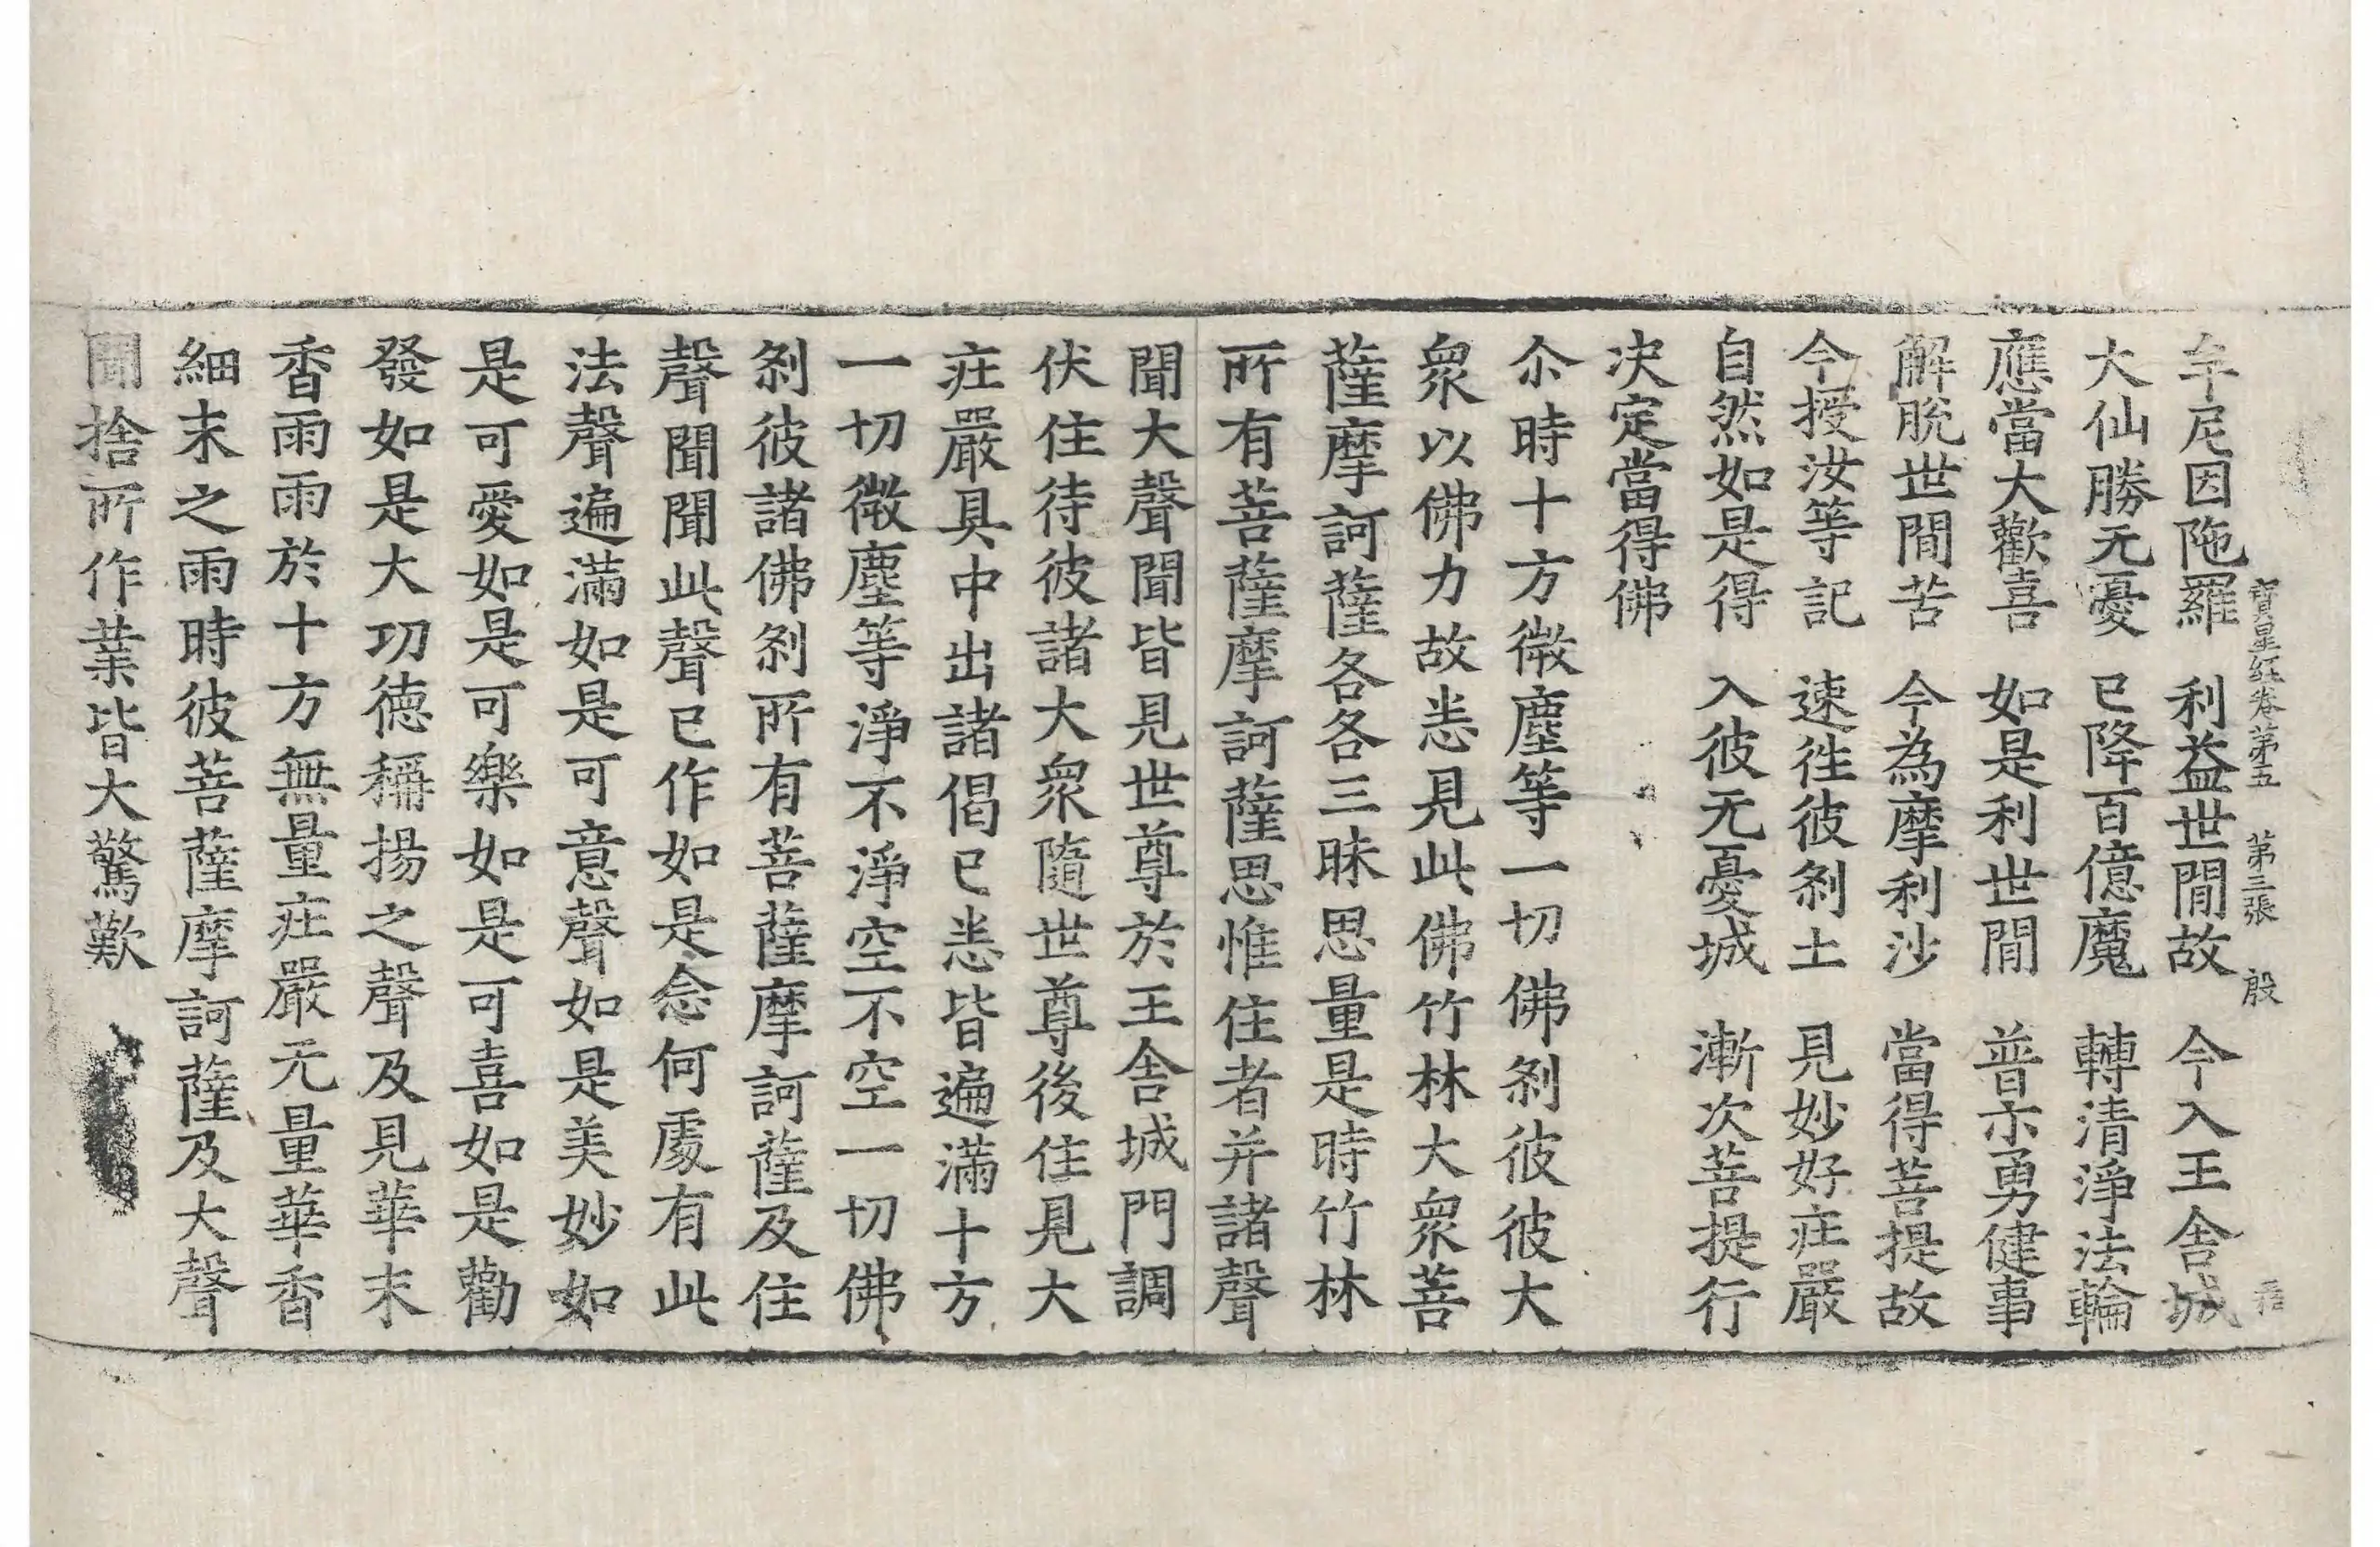 寶星経卷第五 第三張 殷
牟尼因陁羅 利益世間故 今入王舍城
大仙勝无憂 已降百億魔 轉清淨法輪
應當大歡喜 如是利世間 普示勇健事
解脫世間苦 今為摩利沙 當得菩提故
今授汝等記 速往彼刹土 見妙好庄嚴
自然如是得 入彼无憂城 漸次菩提行
决定當得佛
尒時十方微塵等一切佛刹彼彼大
衆以佛力故悉見此佛竹林大衆菩
薩摩訶薩各各三昧思量是時竹林
所有菩薩摩訶薩思惟住者并諸聲
聞大聲聞皆見世尊於王舍城門調
伏住待彼諸大衆隨世尊後住見大
庄嚴具中出諸偈已悉皆遍滿十方
一切微塵等淨不淨空不空一切佛
刹彼諸佛刹所有菩薩摩訶薩及住
聲聞聞此聲已作如是念何處有此
法聲遍滿如是可意聲如是美妙如
是可愛如是可樂如是可喜如是勸
發如是大功德稱揚之聲及見華末
香雨雨於十方無量庄嚴无量華香
細末之雨時彼菩薩摩訶薩及大聲
聞捨所作業皆大驚歎